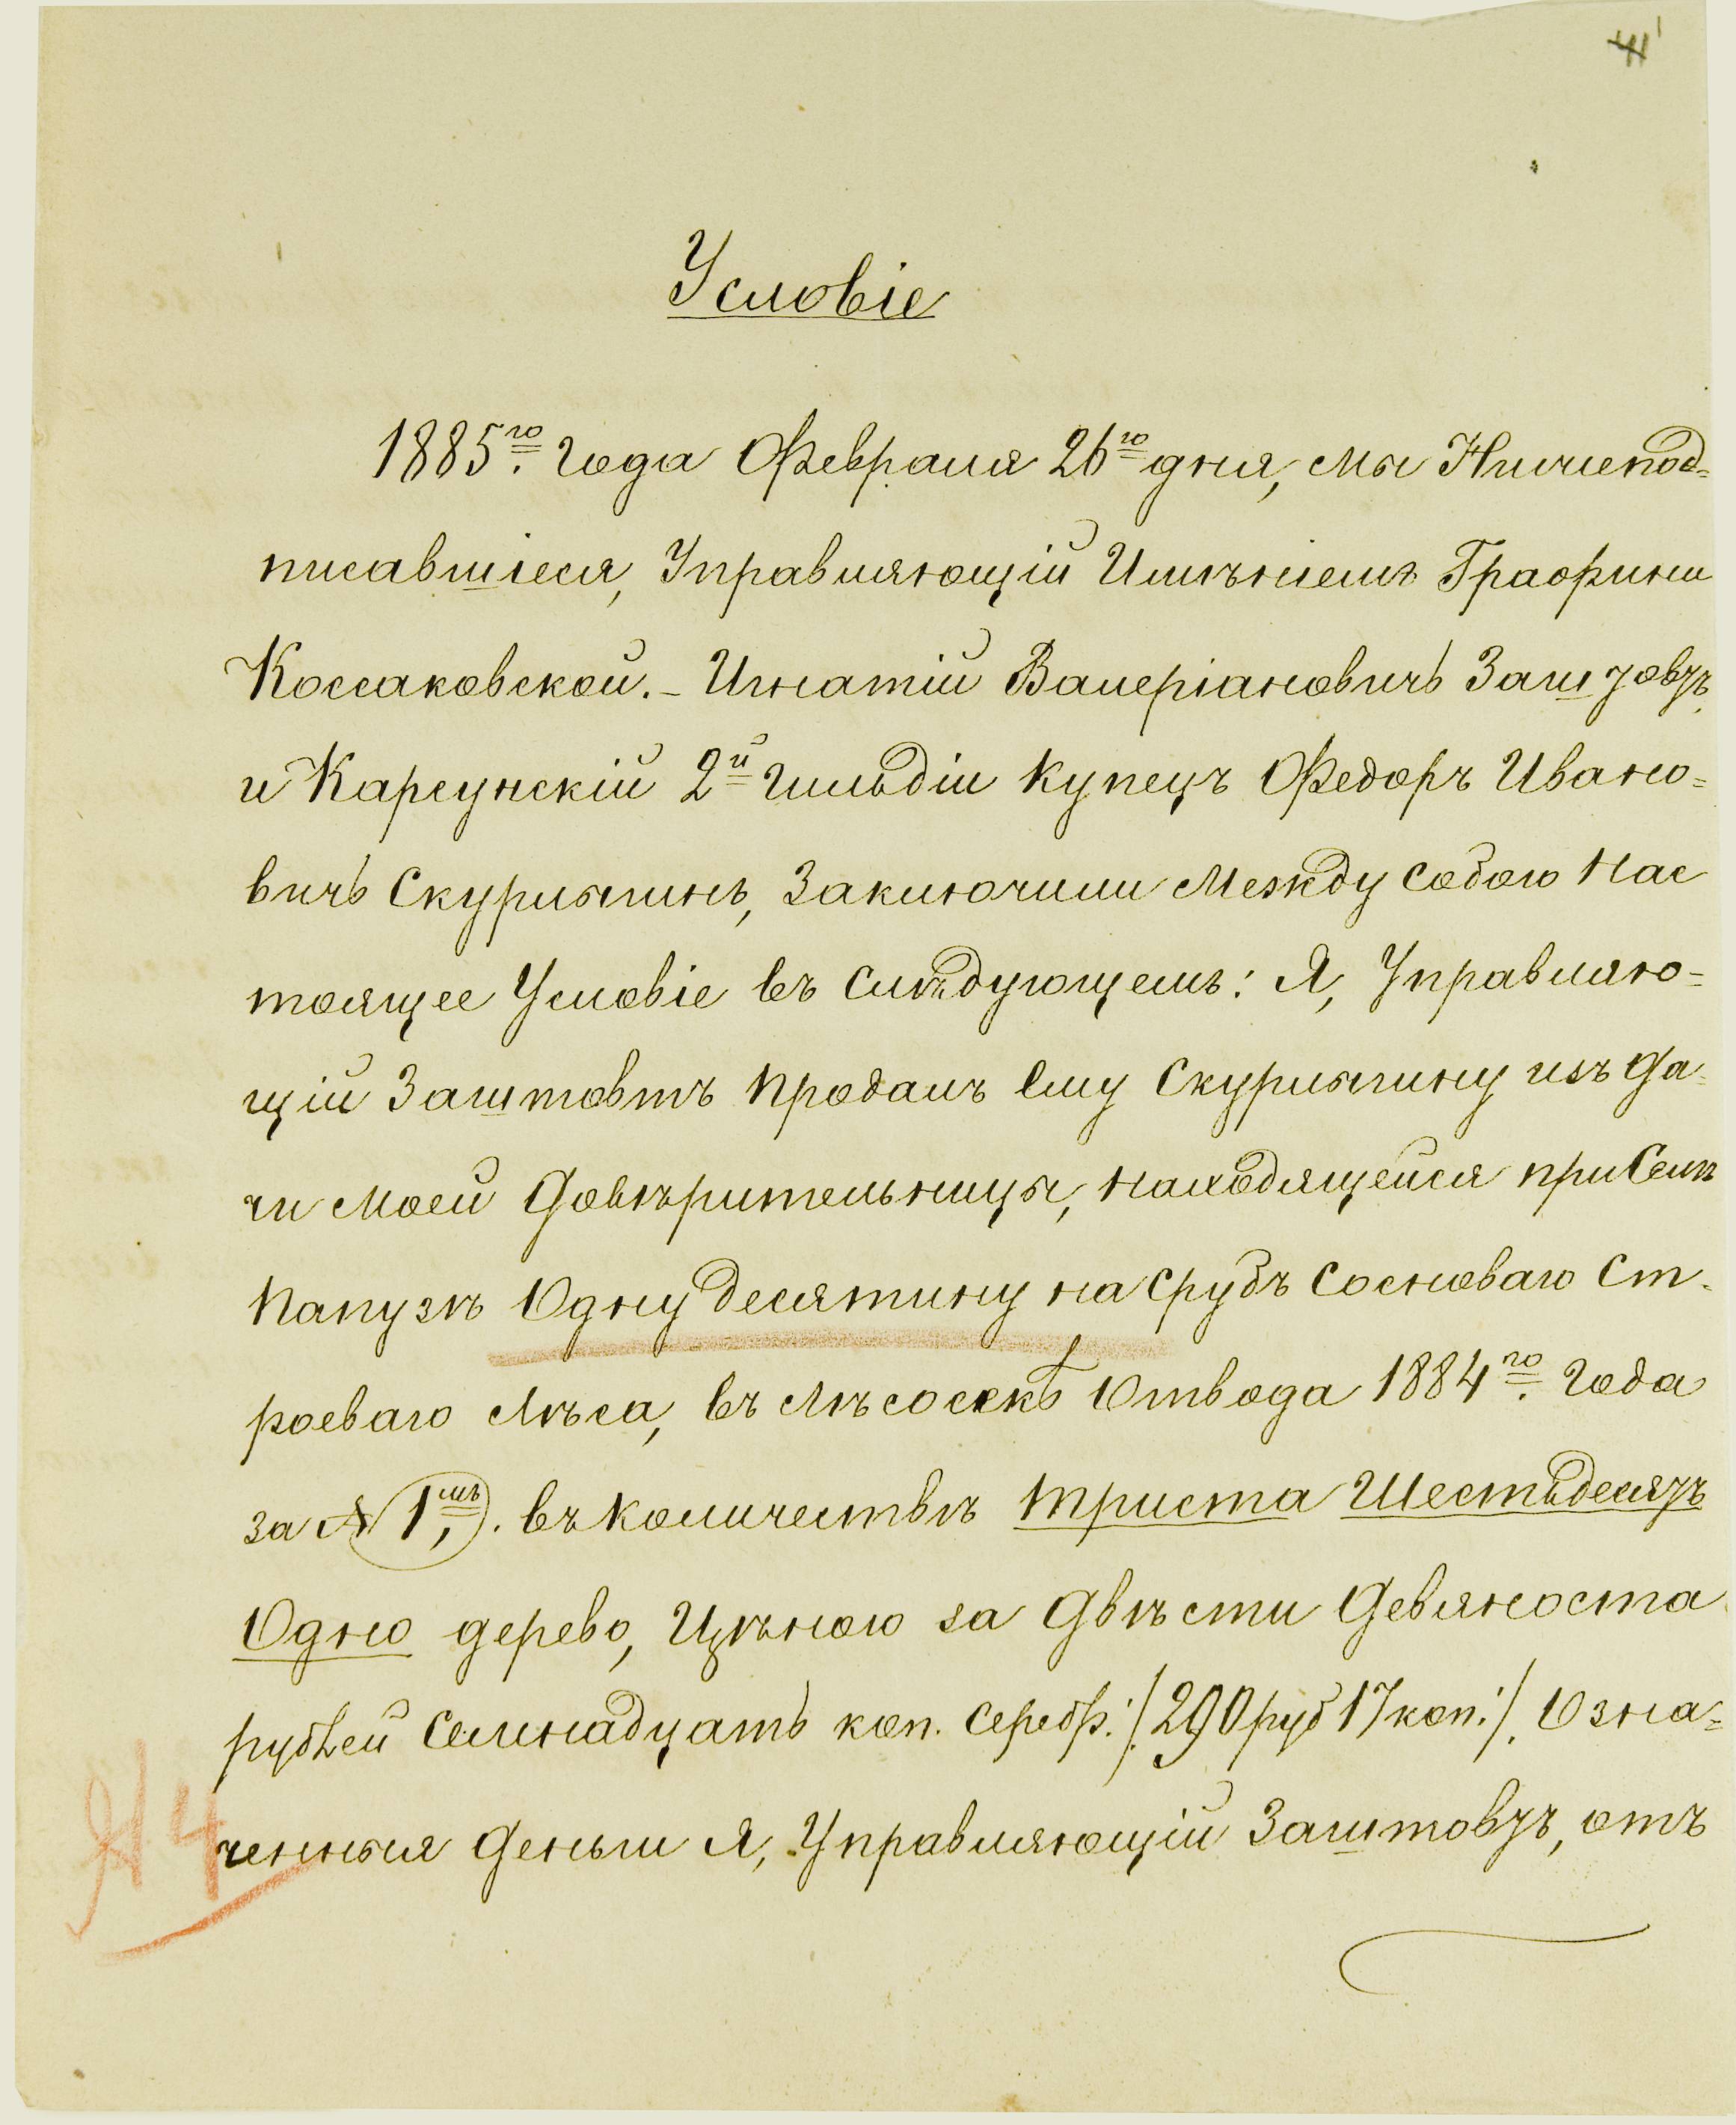 Условіе
1885го. года Февраля 26го дня, мы Нижепод=
писавшіеся, Управляющій Имѣніемъ Графини
Коссаковской.- Игнатій Валеріановичъ Заштовтъ
и Карсунскій 2й гильдіи Купецъ Федоръ Ивано=
вичъ Скурлыгинъ, Заключили Между Собою Нас
тоящее Условіе въ Слѣдующемъ: Я, Управляю=
щій Заштовтъ Продалъ Ему Скурлыгину изъ Да=
чи Моей Довѣрительницы, Находящейся при Селѣ
Папузѣ Одну десятину на Срубъ Сосноваго Ст-
роеваго Лѣса, въ Лѣсосекѣ Отвода 1884го. Года
за № 1мъ. въ Количествѣ Триста Шестьдесятъ
Одно дерево, Цѣною за Двѣсти Девяноста
рублей Семнадцать коп. Серебр. /290 руб 17 коп./. Озна=
ченныя Деньги Я, Управляющій Заштовтъ, отъ
№ 4